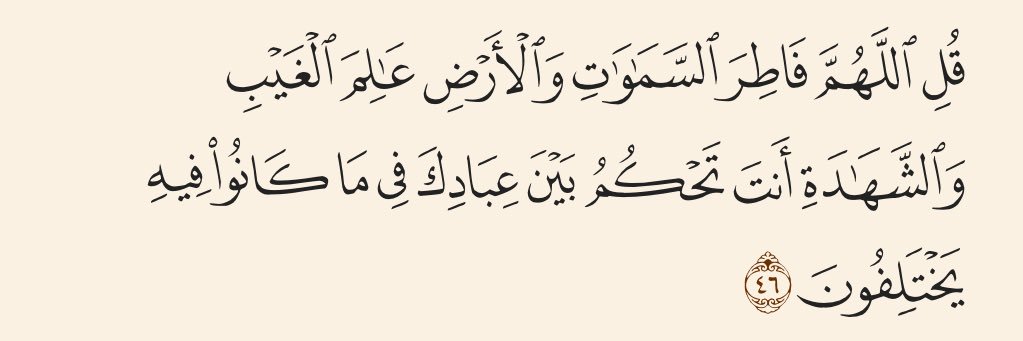 قُلِ ٱللَّهُمَّ فَاطِرَ ٱلسَّمَٰوَٰتِ وَٱلْأَرْضِ عَٰلِمَ ٱلْغَيْبِ
وَٱلشَّهَٰدَةِ أَنتَ تَحْكُمُ بَيْنَ عِبَادِكَ فِى مَا كَانُوا۟ فِيهِ
يَخْتَلِفُونَ ٤٦